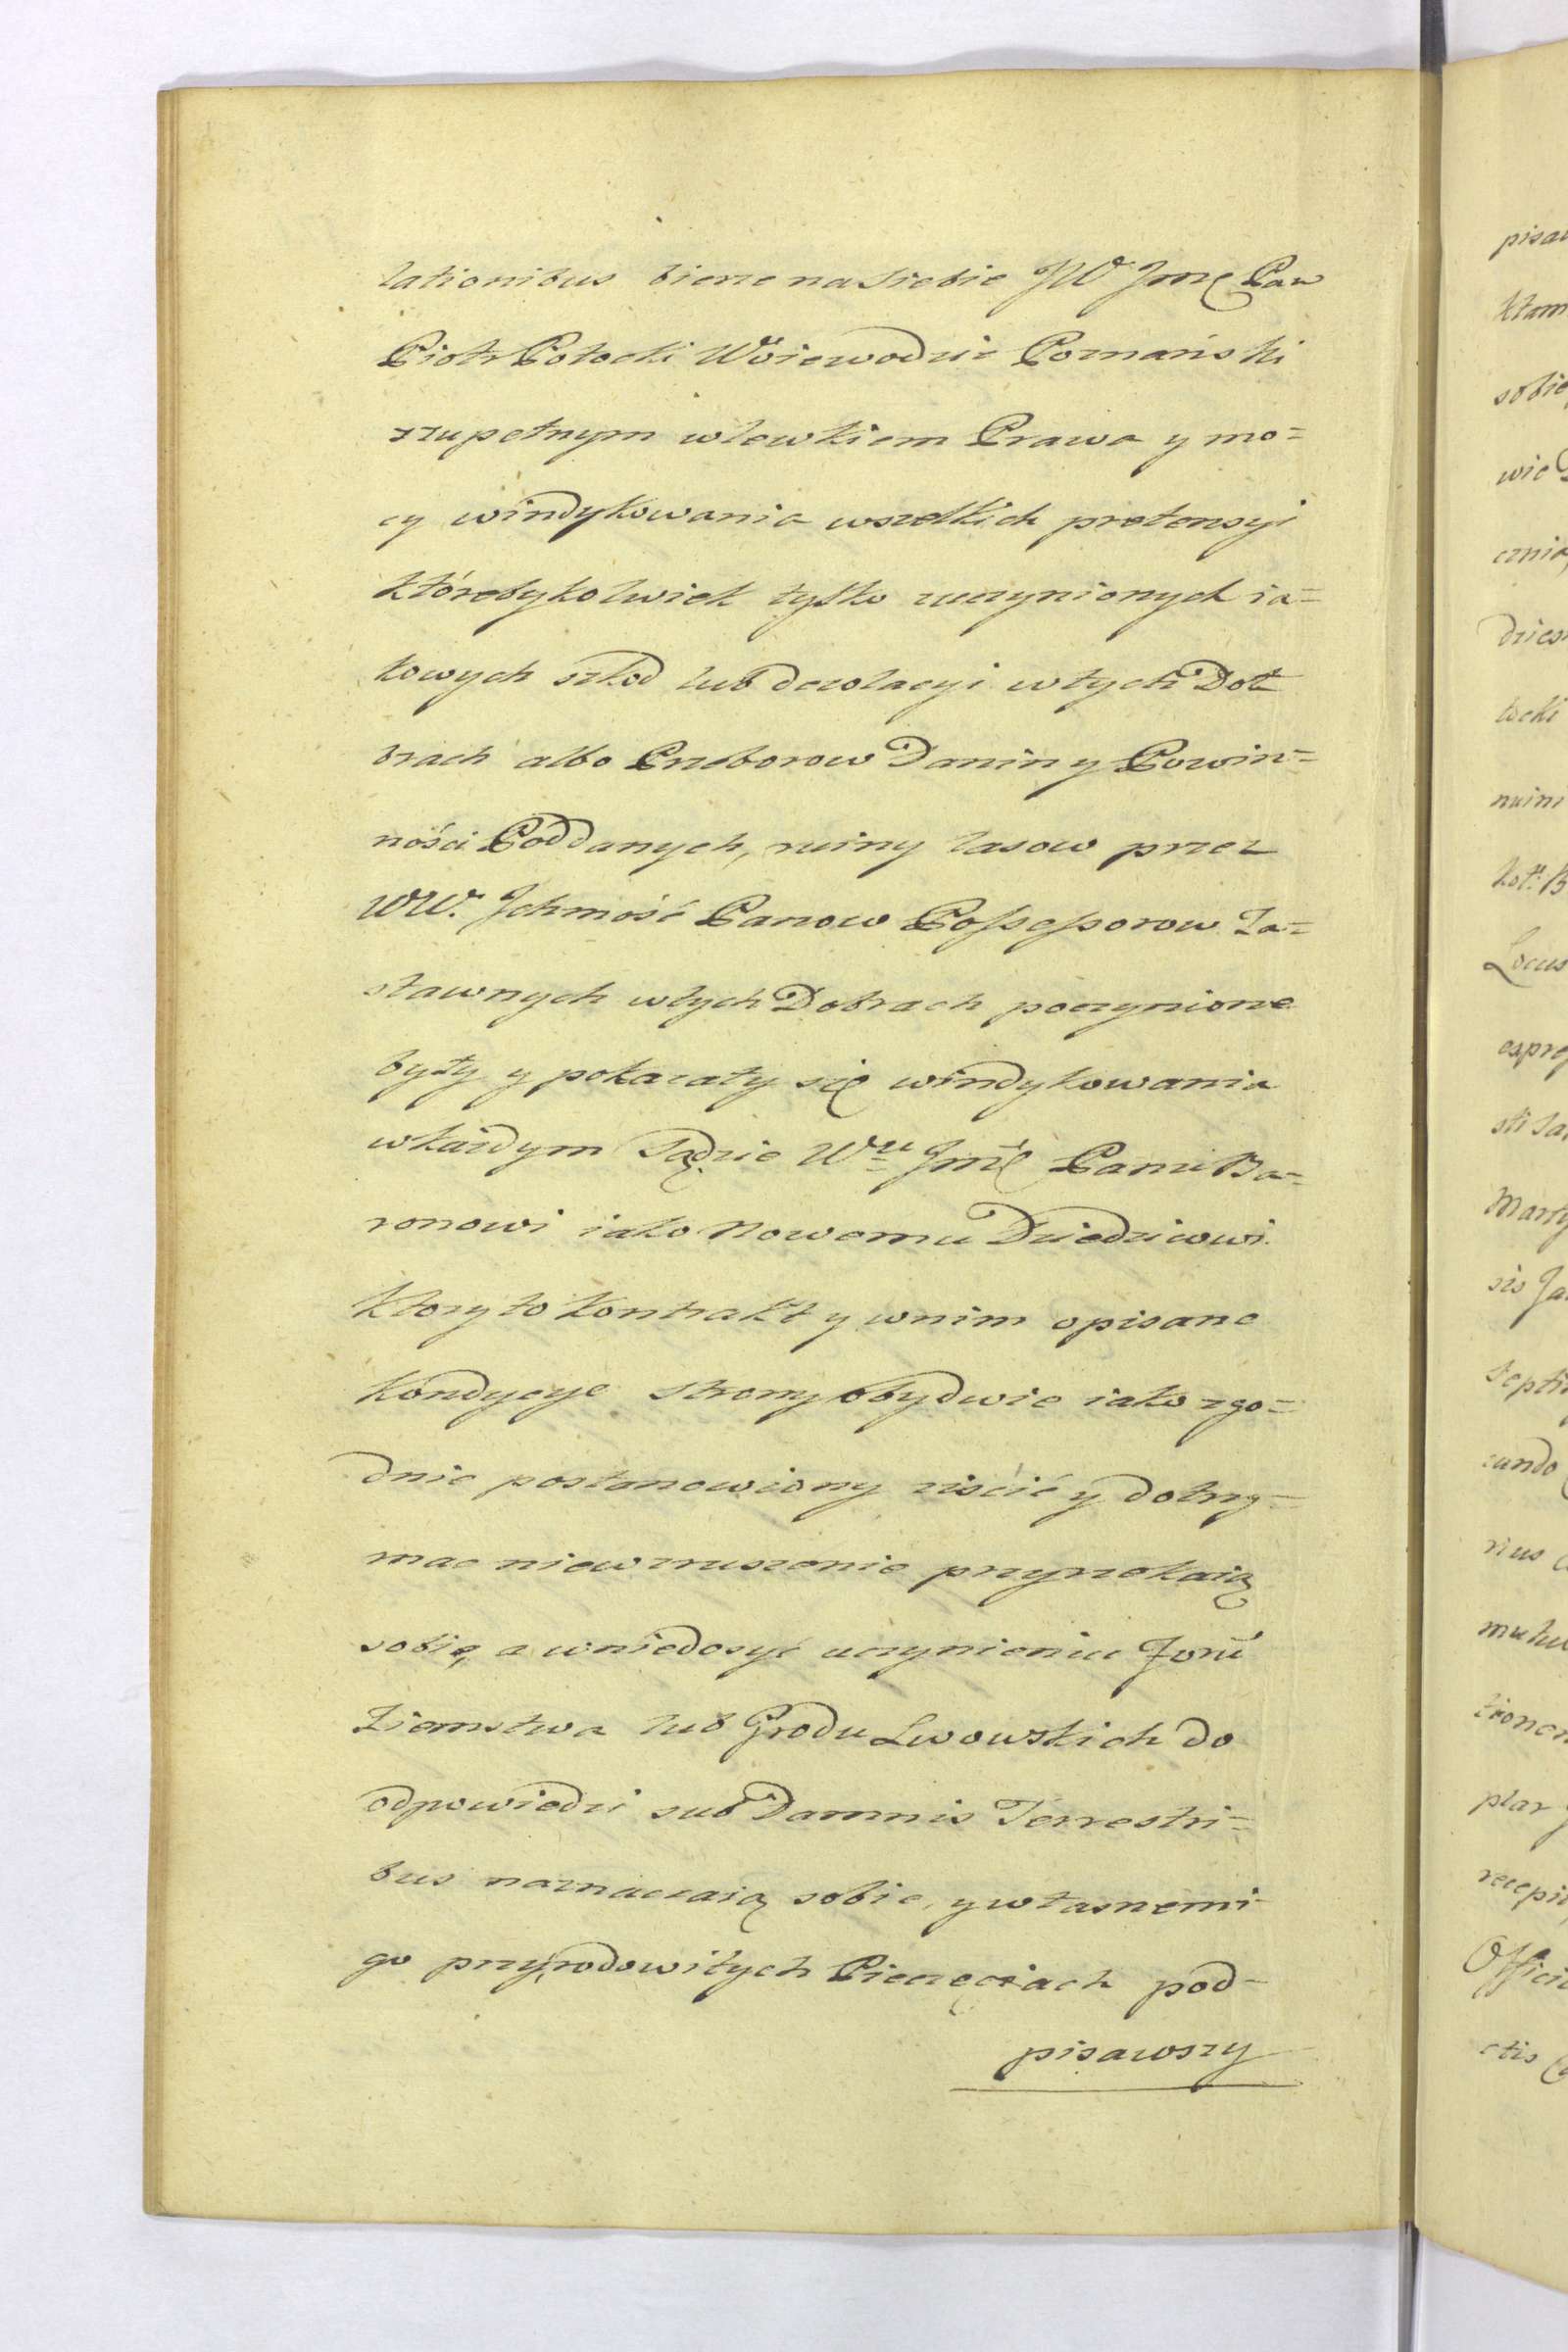 lationibus bierze na Siebie JW Jmę Pan
Piotr Potocki Woiewodzic Poznański
zzupełnym wlewkiem Prawa y mo=
cy windykowania wszelkich pretensyi
którebykolwiek tylko uczynionych ia=
kowych szkod lub dezolacyi wtych Dob
brach albo Przeborow Daniny Powin=
ności Poddanych, ruiny lasow przez
WW. Jchmość Panow Possessorow Za=
stawnych wtych Dobrach poczynione
były y pokazały się windykowania
wkażdym Sądzie Wu Jmę Panu Ba=
ronowi iako Nowemu Dziedzicowi.
Ktory to Kontrakt y wnim opisane
Kondycye strony obydwie iako zgo=
dnie postanowiony ziścić y dotrzy=
mac niewzruszenie przyrzekaią
sobie, a wniedosyć uczynieniu Forū
Ziemstwa lub Grodu Lwowskich do
odpowiedzi sub Damnis Terrestri=
bus naznaczaią sobie, y własnemi
go przyrodowitych Pieczęciach pod=
pisawszy
pisaw
sobie
wie
czni
dzies
tocki
nuini
Locus
Marty
sis Ja
Septi
cundo
rius
mutu
tionem
plar
recepi
Offici
ctis